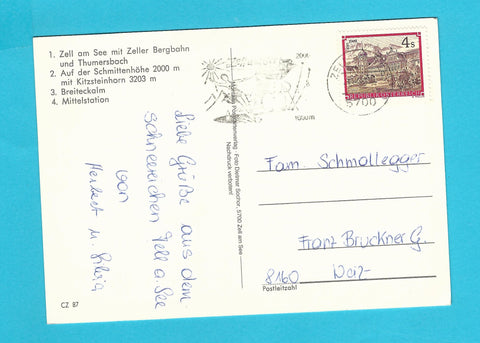 1. Zell am See mit Zeller Bergbahn
und Thumersbach
2. Auf der Schmittenhöhe 2000 m
mit Kitzsteinhorn 3203 m
3. Breiteckalm
4. Mittelstation
Liebe Grüße aus dem
schneereichen Zell a. See
von
Herbert u. Silvia
CZ 87
Foto Dietmar Sochor, 5700 Zell am See
Nachdruck verboten!
2000
5700
4 S
REPUBLIK ÖSTERREICH
Fam. Schmollegger
Franz Bruckner G.
8160 Weiz
Postleitzahl